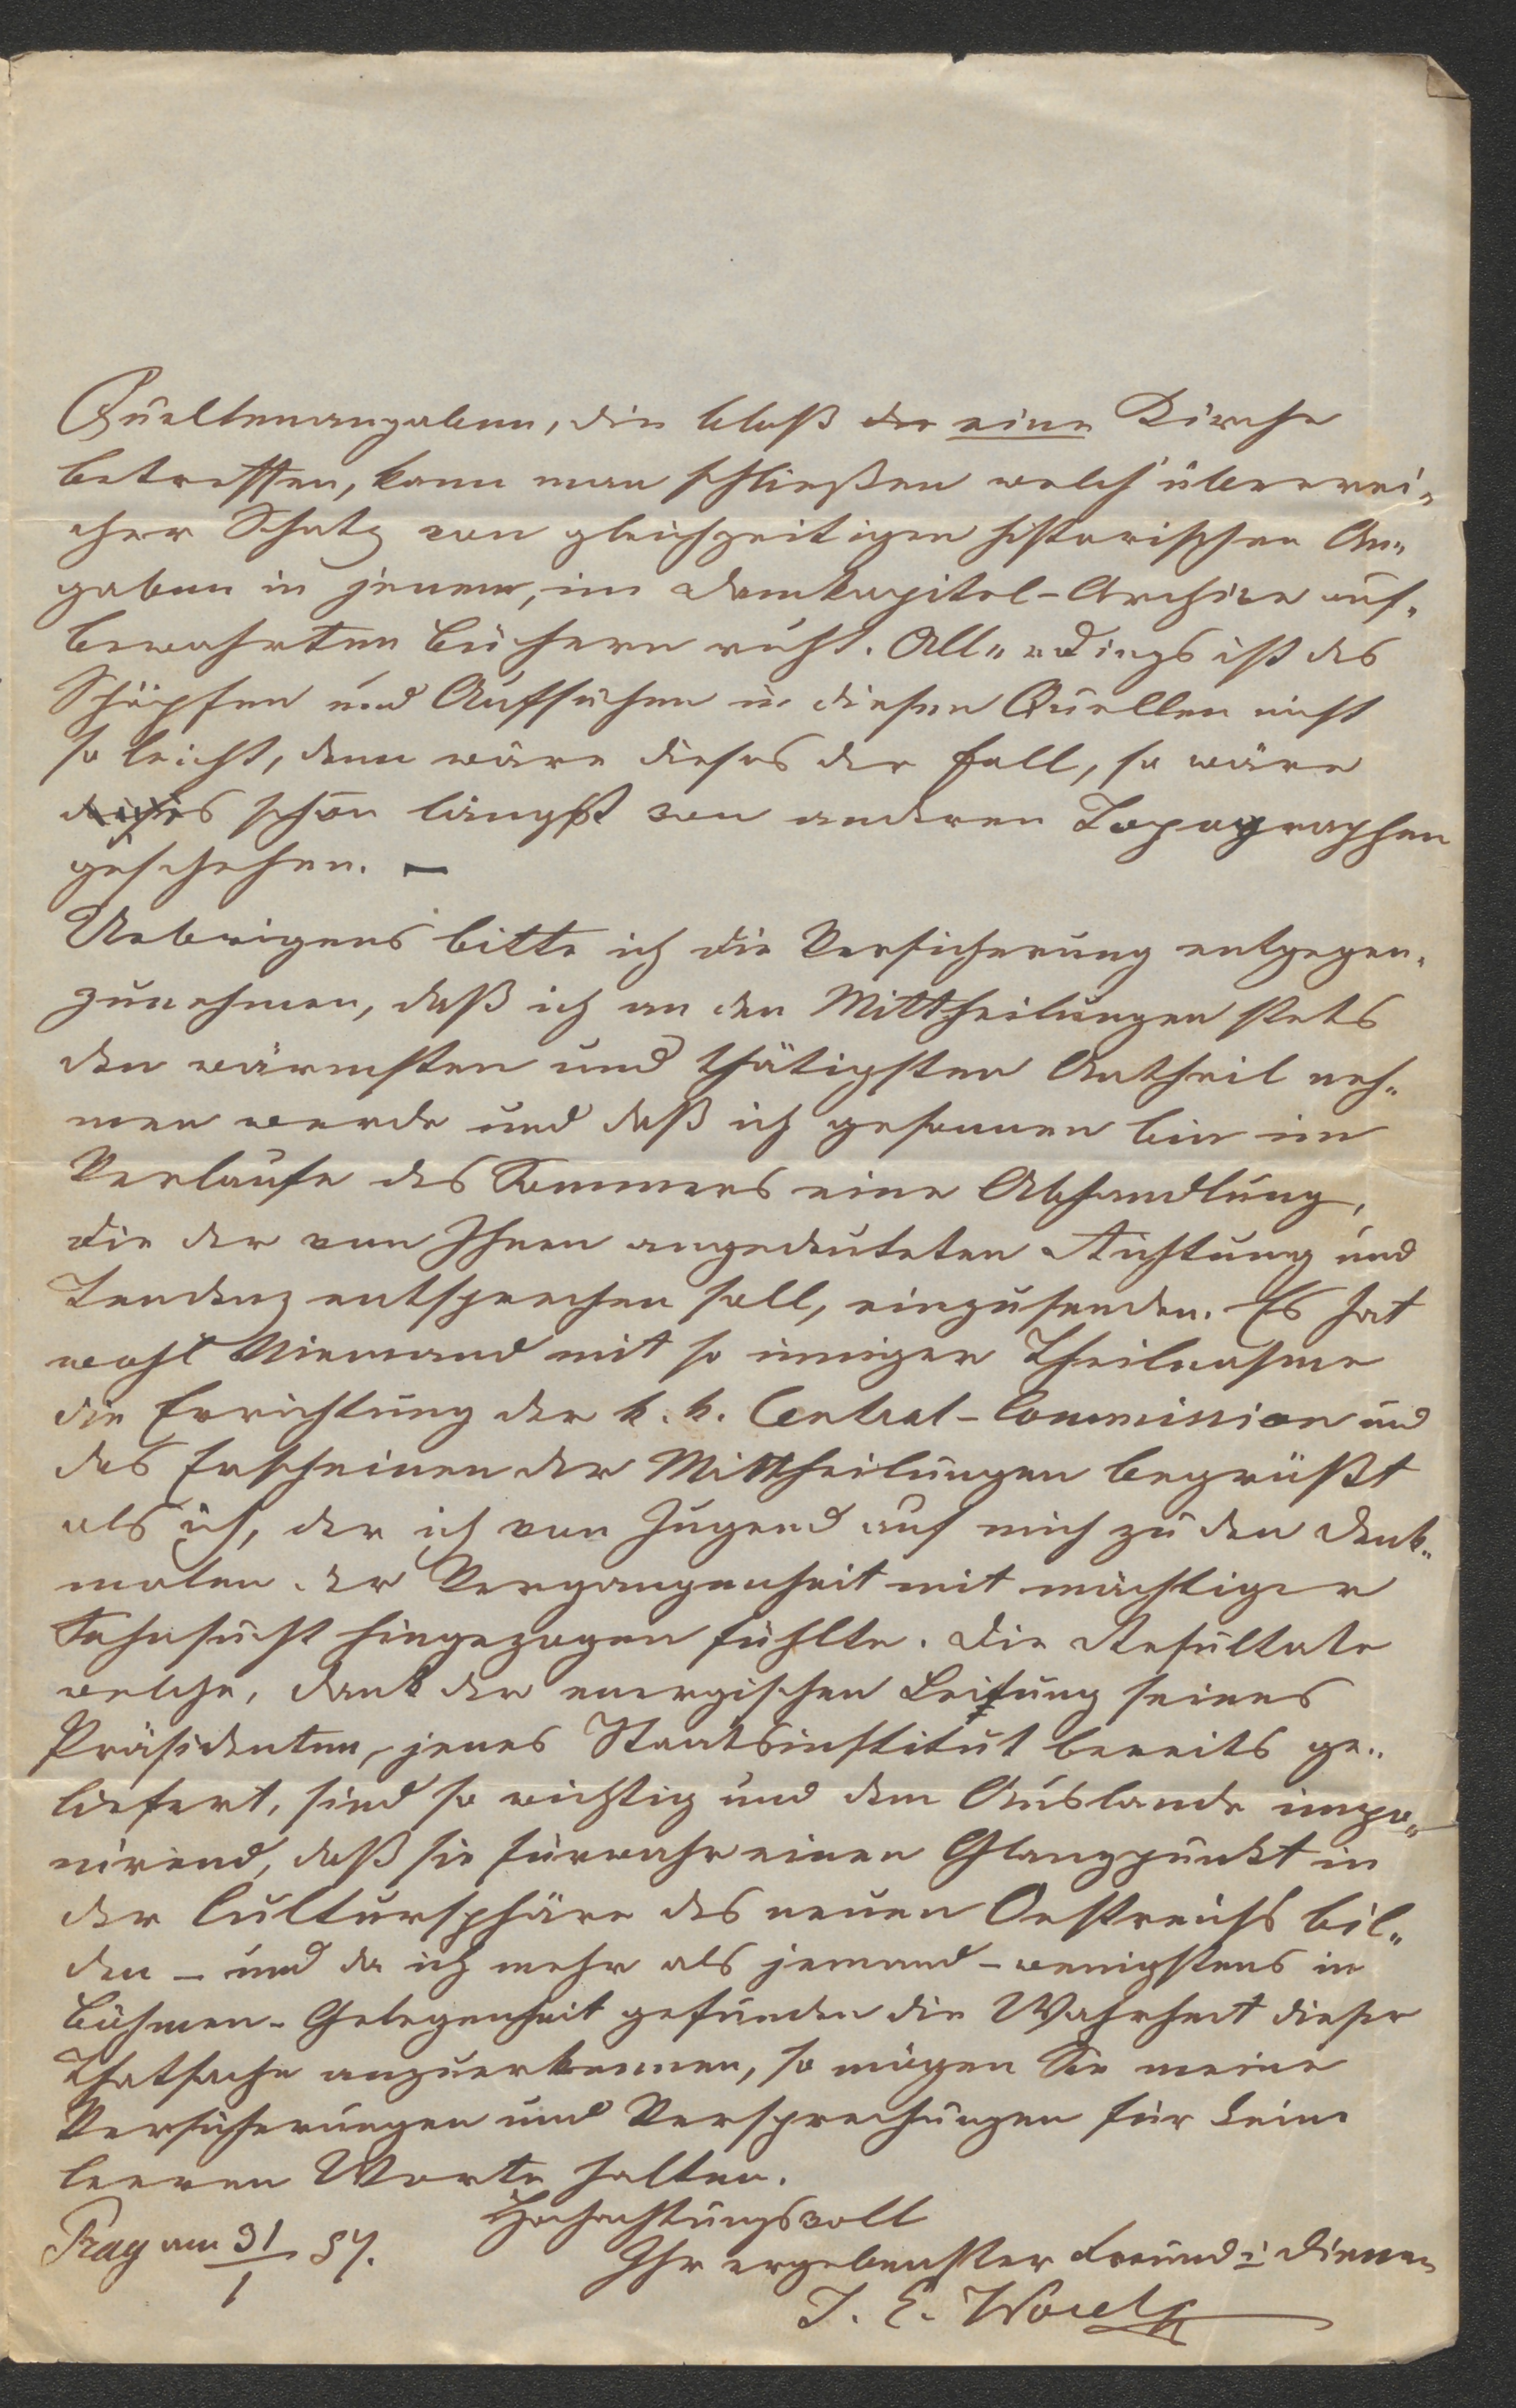 Quellenangaben, die bloß der eine Kirche
betreffen, kann man schließen welch' überrei„
cher Schatz von gleichzeitigen historischen An„
gaben in jenen, im Domkapitel-Archive auf„
bewahrten Büchern ruht. Allerdings ist das
Schöpfen und Aufsuchen in diesen Quellen nicht
so leicht, denn wäre dieses der Fall, so wäre
dieses schon längst von anderen Topographen
geschehen. —
Uebrigens bitte ich die Versicherung entgegen„
zunehmen, daß ich an den Mittheilungen stets
den wärmsten und thätigsten Antheil neh„
men werde und daß ich gesonnen bin im
Verlaufe des Sommers eine Abhandlung,
die der von Ihnen angedeuteten Richtung und
Tendenz entsprechen soll, einzusenden. Es hat
wohl Niemand mit so inniger Theilnahme
die Errichtung der k. k. Central-Commission und
das Erscheinen der Mittheilungen begrüßt
als ich, der ich von Jugend auf mich zu den Denk„
malen der Vergangenheit mit mächtiger
Sehnsucht hingezogen fühlte. Die Resultate
welche, dank der energischen Leitung seines
Präsidenten, jenes Staatsinstitut bereits ge„
liefert, sind so wichtig und dem Auslande impo„
nirend, daß sie fürwahr einen Glanzpunkt in
der Cultursphäre des neuen Oestreichs bil„
den – und da ich mehr als jemand – wenigstens in
Böhmen – Gelegenheit gefunden die Wahrheit dieser
Thatsache anzuerkennen, so mögen Sie meine
Versicherungen und Versprechungen für keine
leeren Worte halten.
Hochachtungsvoll
Prag am 31/1 57.
Ihr ergebenster Freund u Diener
J. E. Wocel